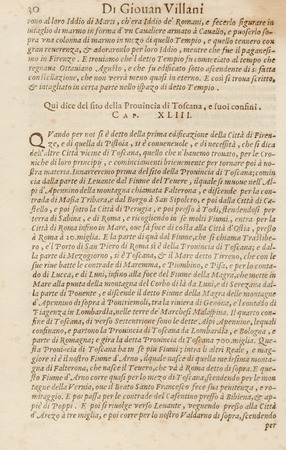 30 DI Giouan Villani
rono al loro Iddio di Marti, ch'era Iddio de' Romani, e fecerlo figurare in
intaglio di marmo in forma d'vn Caualiere armato à Cauallo, e puoserlo so-
pra vna colonna di marmo in mezo di quello Tempio, e quello tennero con
gran reuerenza, & adoraronlo per loro Iddio, mentre che fue il paganesi-
mo in Firenze. E trouiamo che'l detto Tempio fu cominciato al tempo che
regnaua Ottauiano Agusto, e che fu edificato sotto ascendente di sì fatta
constellatione, che non verrà meno quasi in eterno. E così si troua scritto,
& intagliato in certa parte nello spazzo di detto Tempio.
Qui dice del sito della Prouincia di Toscana, e suoi confini.
CAP. XLIII.
QVando per noi si è detto della prima edificazione della Città di Firen-
ze, e di quella di Pistoia, si è conueneuole, e di necessità, che si dica
dell'altre Città vicine di Toscana, quello che n'hauemo trouato, per le Cro-
niche di loro principio, e cominciamenti brieuemente per tornare poi à no-
stra materia. Innarreremo prima del sito della Prouincia di Toscana; comin-
cia dalla parte di Leuante dal Fiume del Teuere, il quale si muoue nell' Al-
pi d'Apennino della montagna chiamata Falterona, e discende per la con-
trada di Massa Tribara, e dal Borgo à San Sipolcro, e poi dalla Città di Ca-
stello, e poi sotto la Città di Perugia, e poi presso à Todi, stendendosi per
terra di Sabina, e di Roma, e ricogliendo in se molti Fiumi, entra per la
Città di Roma infino in Mare, oue fà foce di costa alla Città d'Ostia, presso
à Roma à 20. miglia. E la parte di quà dal Fiume, che si chiama Trastibe-
ro, e'l Porto di San Piero di Roma si è della Prouincia di Toscana; e dal-
la parte di Mezogiorno, si è Toscana, & il Mare detto Tirreno, che con le
sue riue batte le contrade di Maremma, e Piombino, e Pisa, e per lo conta-
do di Lucca, e di Luni, infino alla foce del Fiume della Magra, che mette in
Mare alla punta della montagna del Corbo di là da Luni, e di Serezana dal-
la parte di Ponente, e discende il detto Fiume della Magra delle montagne
d'Apennino di sopra à Pontriemoli, tra la riuiera di Genoua, e'l contado di
Piagenza in Lombardia, nelle terre de' Marchesi Malespina. Il quarto confi-
ne di Toscana, di verso Settentrione sono le dette Alpi Apennino, le quali
confinano, e partono la Prouincia di Toscana da Lombardia, e Bologna, e
parte di Romagna; e gira la detta Prouincia di Toscana 700. miglia. Que-
sta Prouincia di Toscana ha in se più Fiumi; intra li altri Reale, e mag-
giore si è il nostro Fiume d'Arno, il quale nasce di quella medesima monta-
gna di Falterona, che nasce il Teuero, che và à Roma detto di sopra. E que-
sto Fiume d'Arno corre quasi per lo mezo di Toscana, scendendo per le mon-
tagne della Vernia, oue il Beato Santo Francesco fece sua penitenza, e ro-
mitaggio. E poi passa per le contrade del Casentino presso à Bibiena, & ap-
piè di Poppi. E poi si riuolge verso Leuante, vegnendo presso alla Città
d'Arezo à tre miglia, e poi corre per lo nostro Valdarno di sopra, scendendo
per